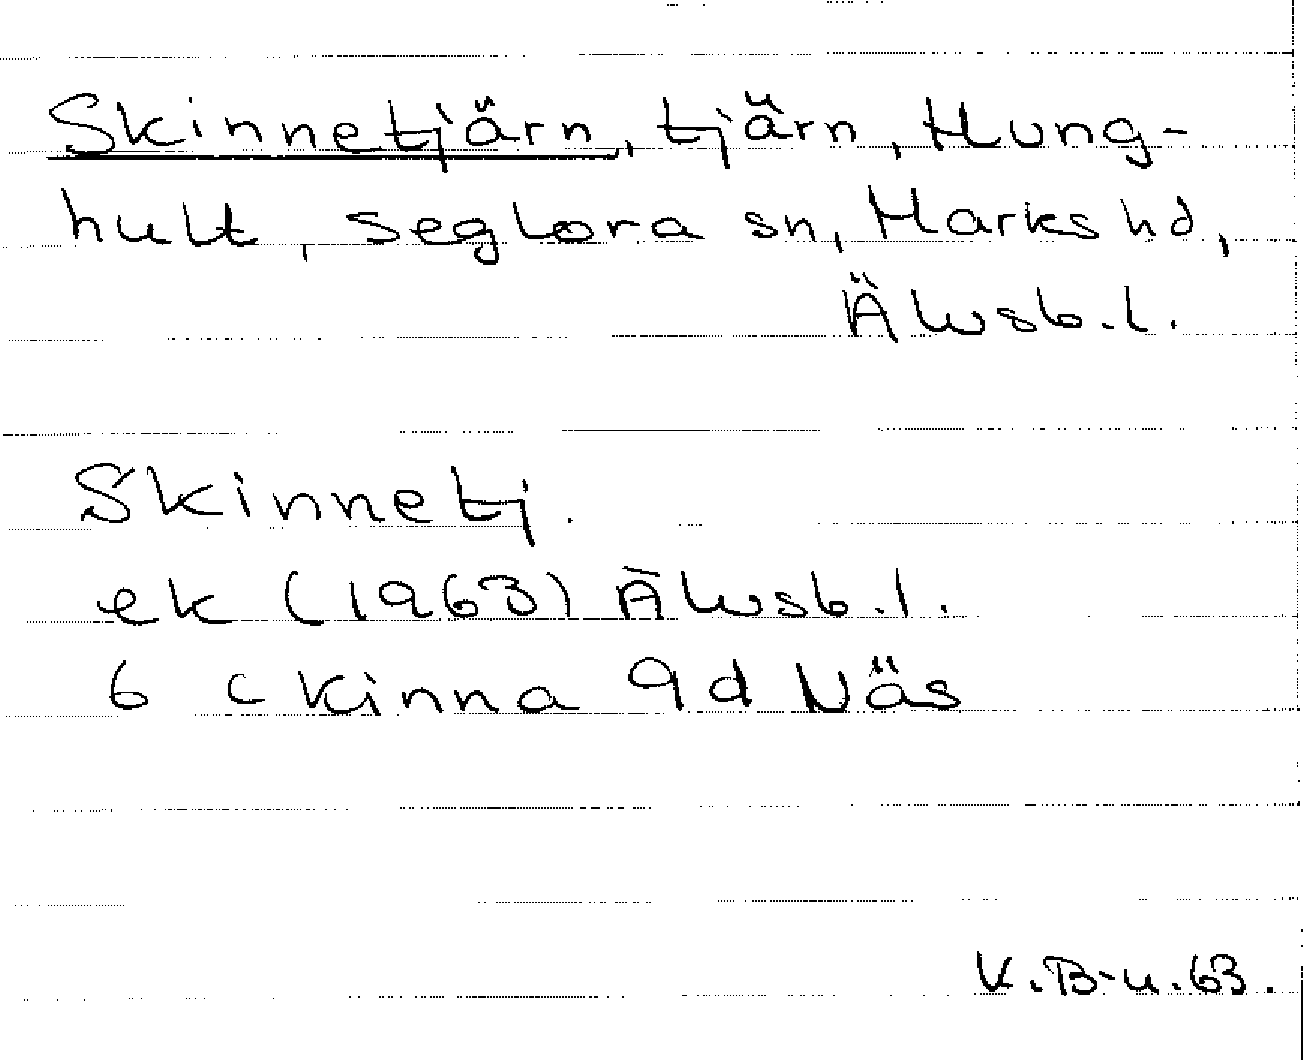 Skinnetjärn, tjärn, Hung-
hult, Seglora sn, Marks hd,
Älvsb.l.
Skinnetj.
ek (1963) Älvsb.l.
6 c Kinna 9d Näs
K.B-u.63.